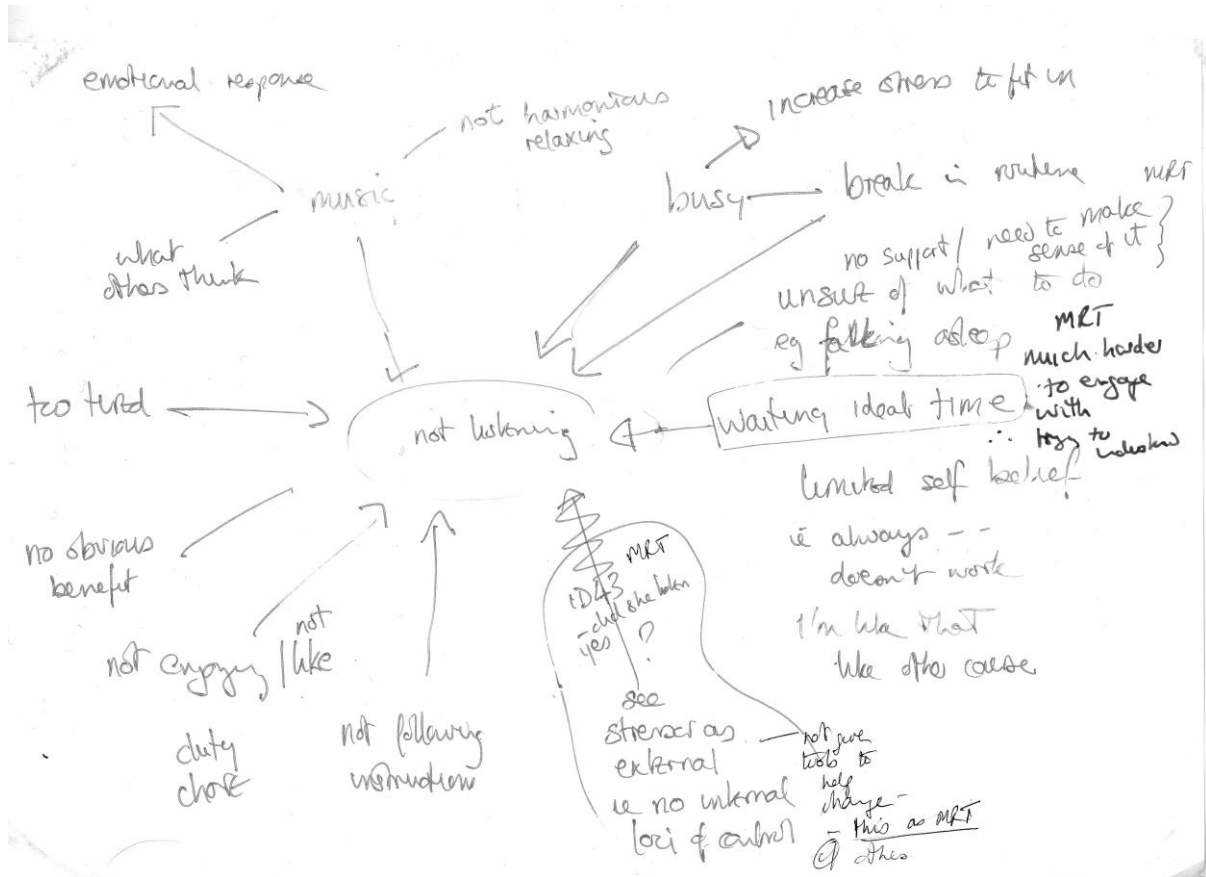 emotional response
not harmonious
relaxing
music
what
others think
increase stress to fit in
busy
break in routine
MRT
no support / need to make
sense of it
unsure of what to do
eg falling asleep
MRT
much harder
to engage
with
∴ try to
understand
waiting ideal time
too tired
not listening
limited self belief
ie always - -
doesn't work
I'm like that
like other course
no obvious
benefit
not enjoying / not
like
duty
chore
not following
instruction
MRT
ID43
- did she listen
yes ?
see
stressor as
external
ie no internal
loci of control
not given
tools to
help
change -
- this as MRT
cf others